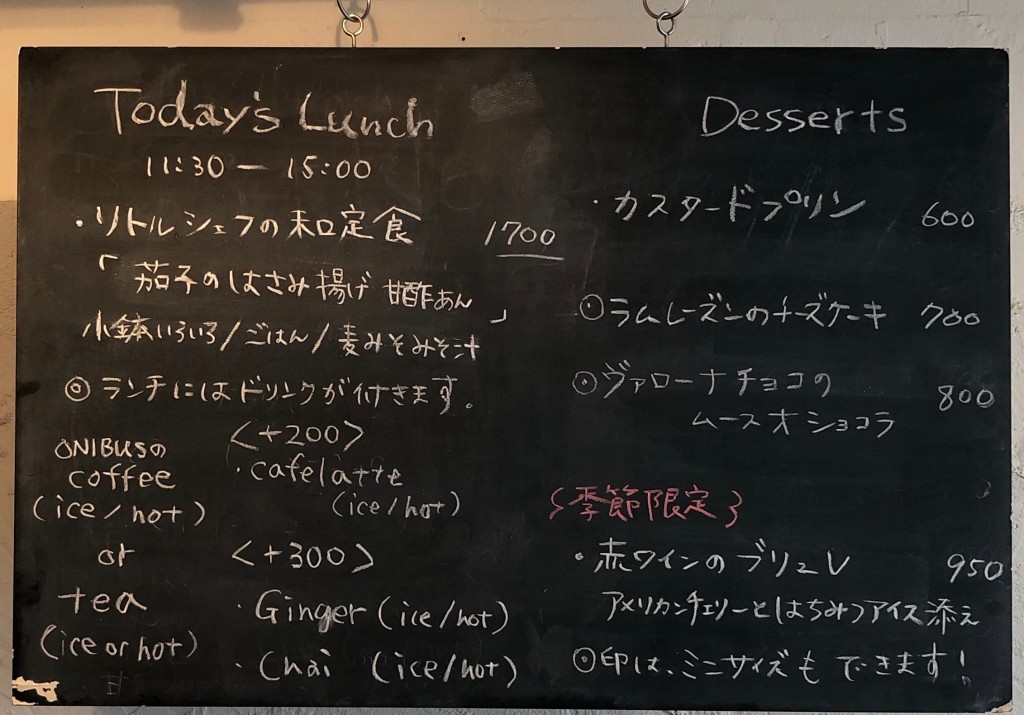 Today's Lunch
11:30 — 15:00
・リトルシェフの和定食 1700
「茄子のはさみ揚げ 甘酢あん
小鉢いろいろ/ごはん/麦みそみそ汁」
◎ランチにはドリンクが付きます。
ONIBUSの
coffee
(ice/hot)
or
tea
(ice or hot)
<+200>
・cafelatte
(ice/hot)
<+300>
・Ginger (ice/hot)
・Chai (ice/hot)
Desserts
・カスタードプリン 600
◎ラムレーズンのチーズケーキ 700
◎ヴァローナチョコの 800
ムースオショコラ
{季節限定}
・赤ワインのブリュレ 950
アメリカンチェリーとはちみつアイス添え
◎印は、ミニサイズもできます!